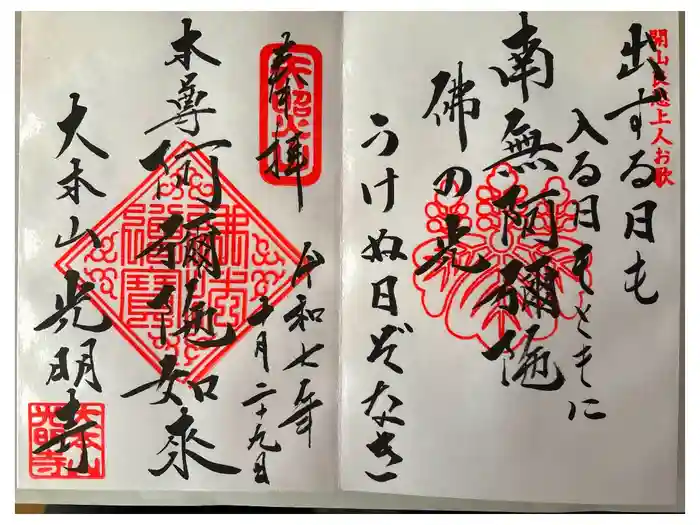 開山良忠上人お歌
出する日も
入る日もともに
南無阿彌陁
佛の光
うけぬ日ぞなき
奉拝
令和七年
十月二十九日
本尊阿彌陁如来
大本山光明寺